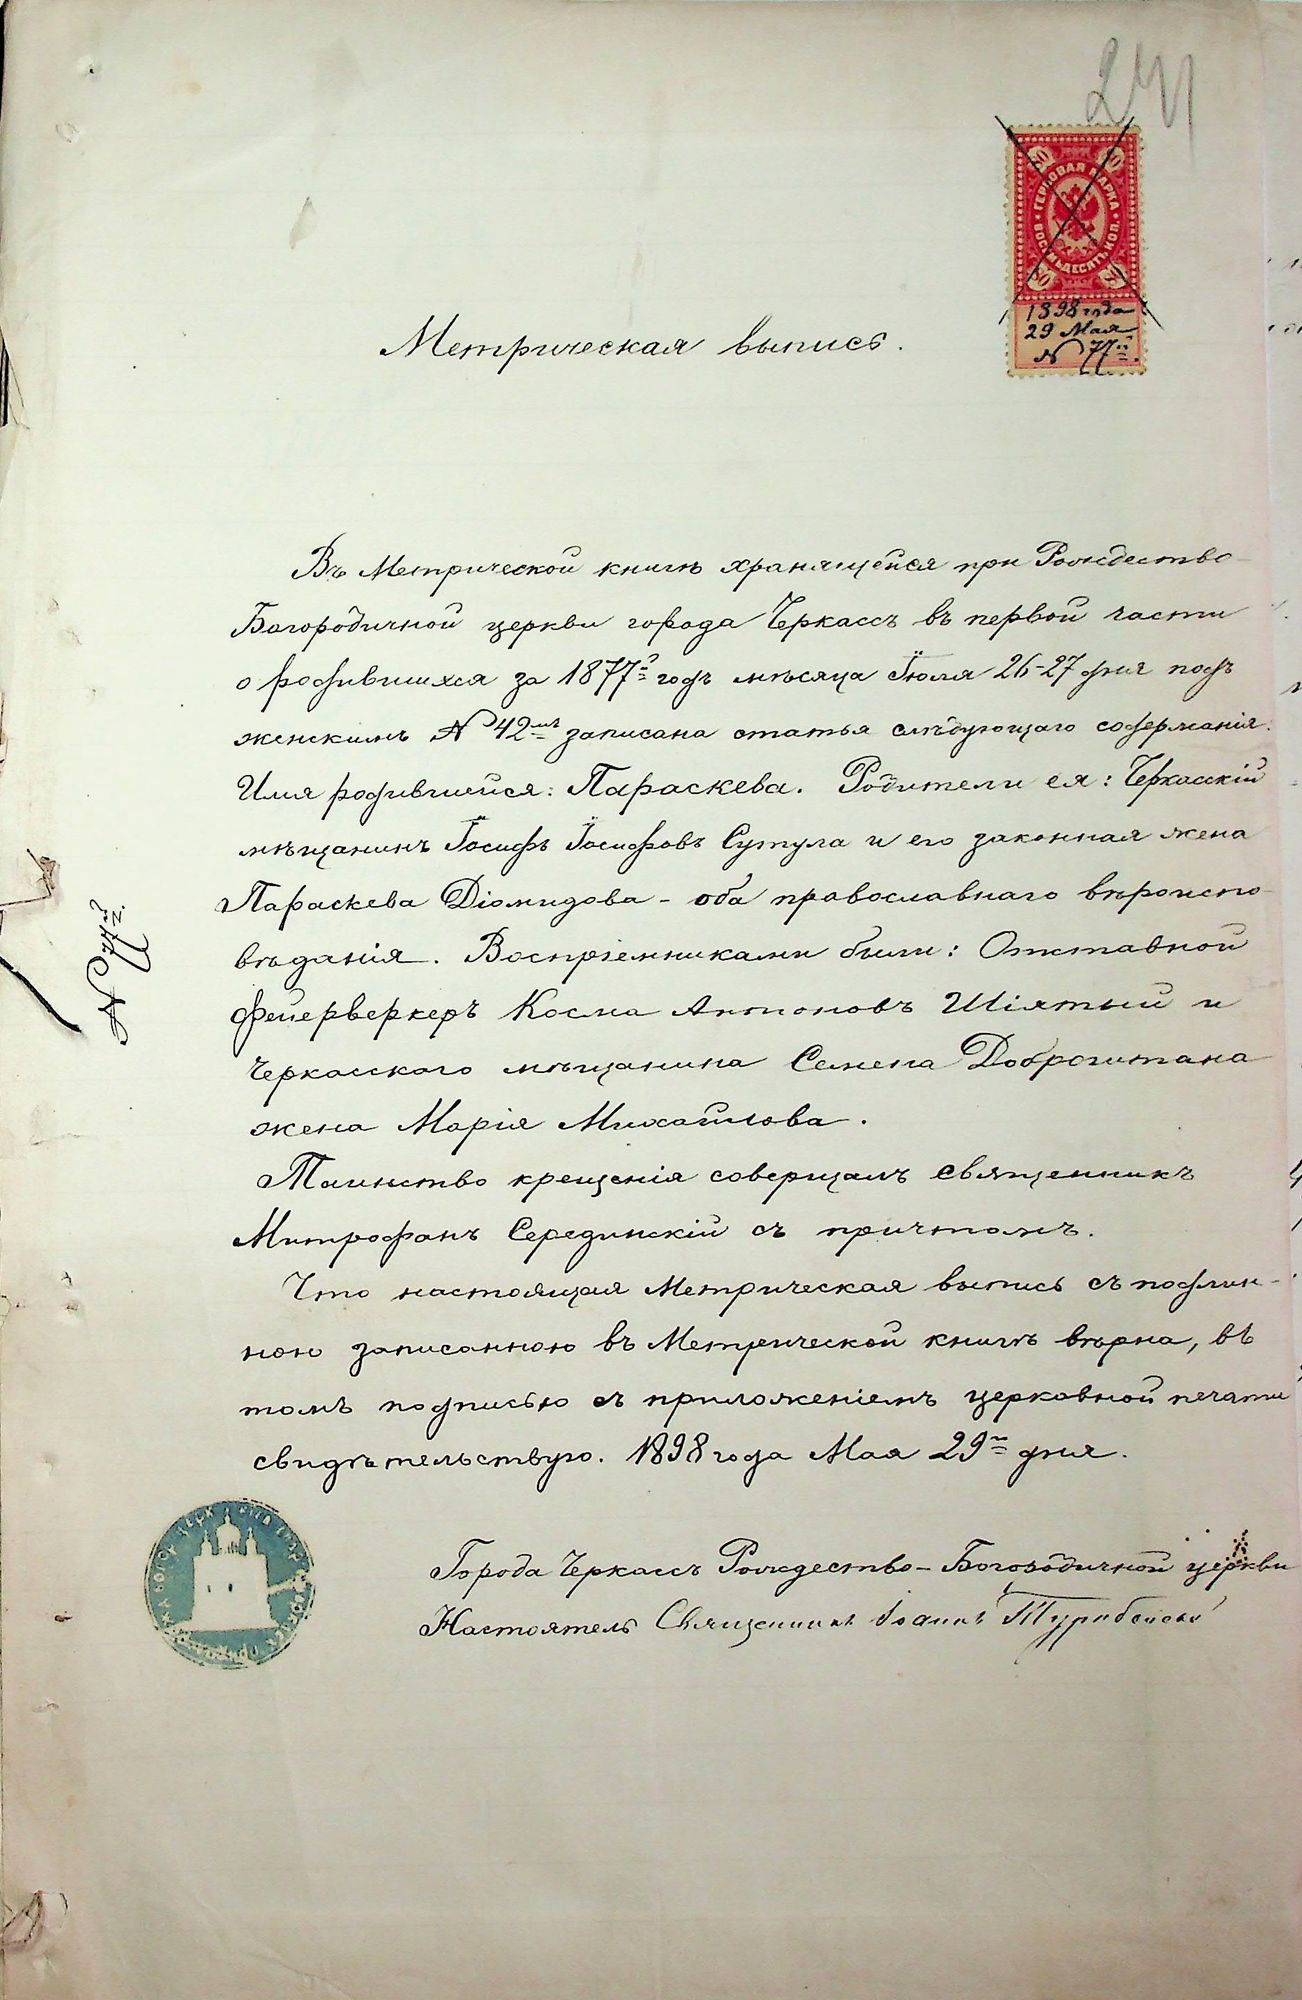 241
ГЕРБОВАЯ МАРКА
ВОСЕМЬДЕСЯТЪ КОП.
80 80
80 80
1898 года
29 Мая
№ 77й.
Метрическая выпись.
Въ Метрической книгѣ хранящейся при Рождество-
Богородичной церкви города Черкассъ въ первой части
о родившихся за 1877й годъ мѣсяца Іюля 26-27 дня подъ
женскимъ № 42мъ записана статья слѣдующаго содержанія.
Имя родившейся: Параскева. Родители ея: Черкасскій
мѣщанинъ Іосифъ Іосифовъ Сутула и его законная жена
Параскева Діомидова - оба православнаго вѣроиспо-
вѣданія. Воспріемниками были: Отставной
фейерверкеръ Косма Антоновъ Шіятый и
Черкасского мѣщанина Семена Доброштана
жена Марія Михайлова.
Таинство крещенія совершалъ священникъ
Митрофанъ Серединскій съ причтомъ.
Что настоящая Метрическая выпись съ подлин-
ною записанною въ Метрической книгѣ вѣрна, въ
томъ подписью съ приложеніемъ церковной печати
свидѣтельствую. 1898 года Мая 29го дня.
Города Черкассъ Рождество-Богородичной церкви
Настоятель Священникъ Іоаннъ
№ 77.